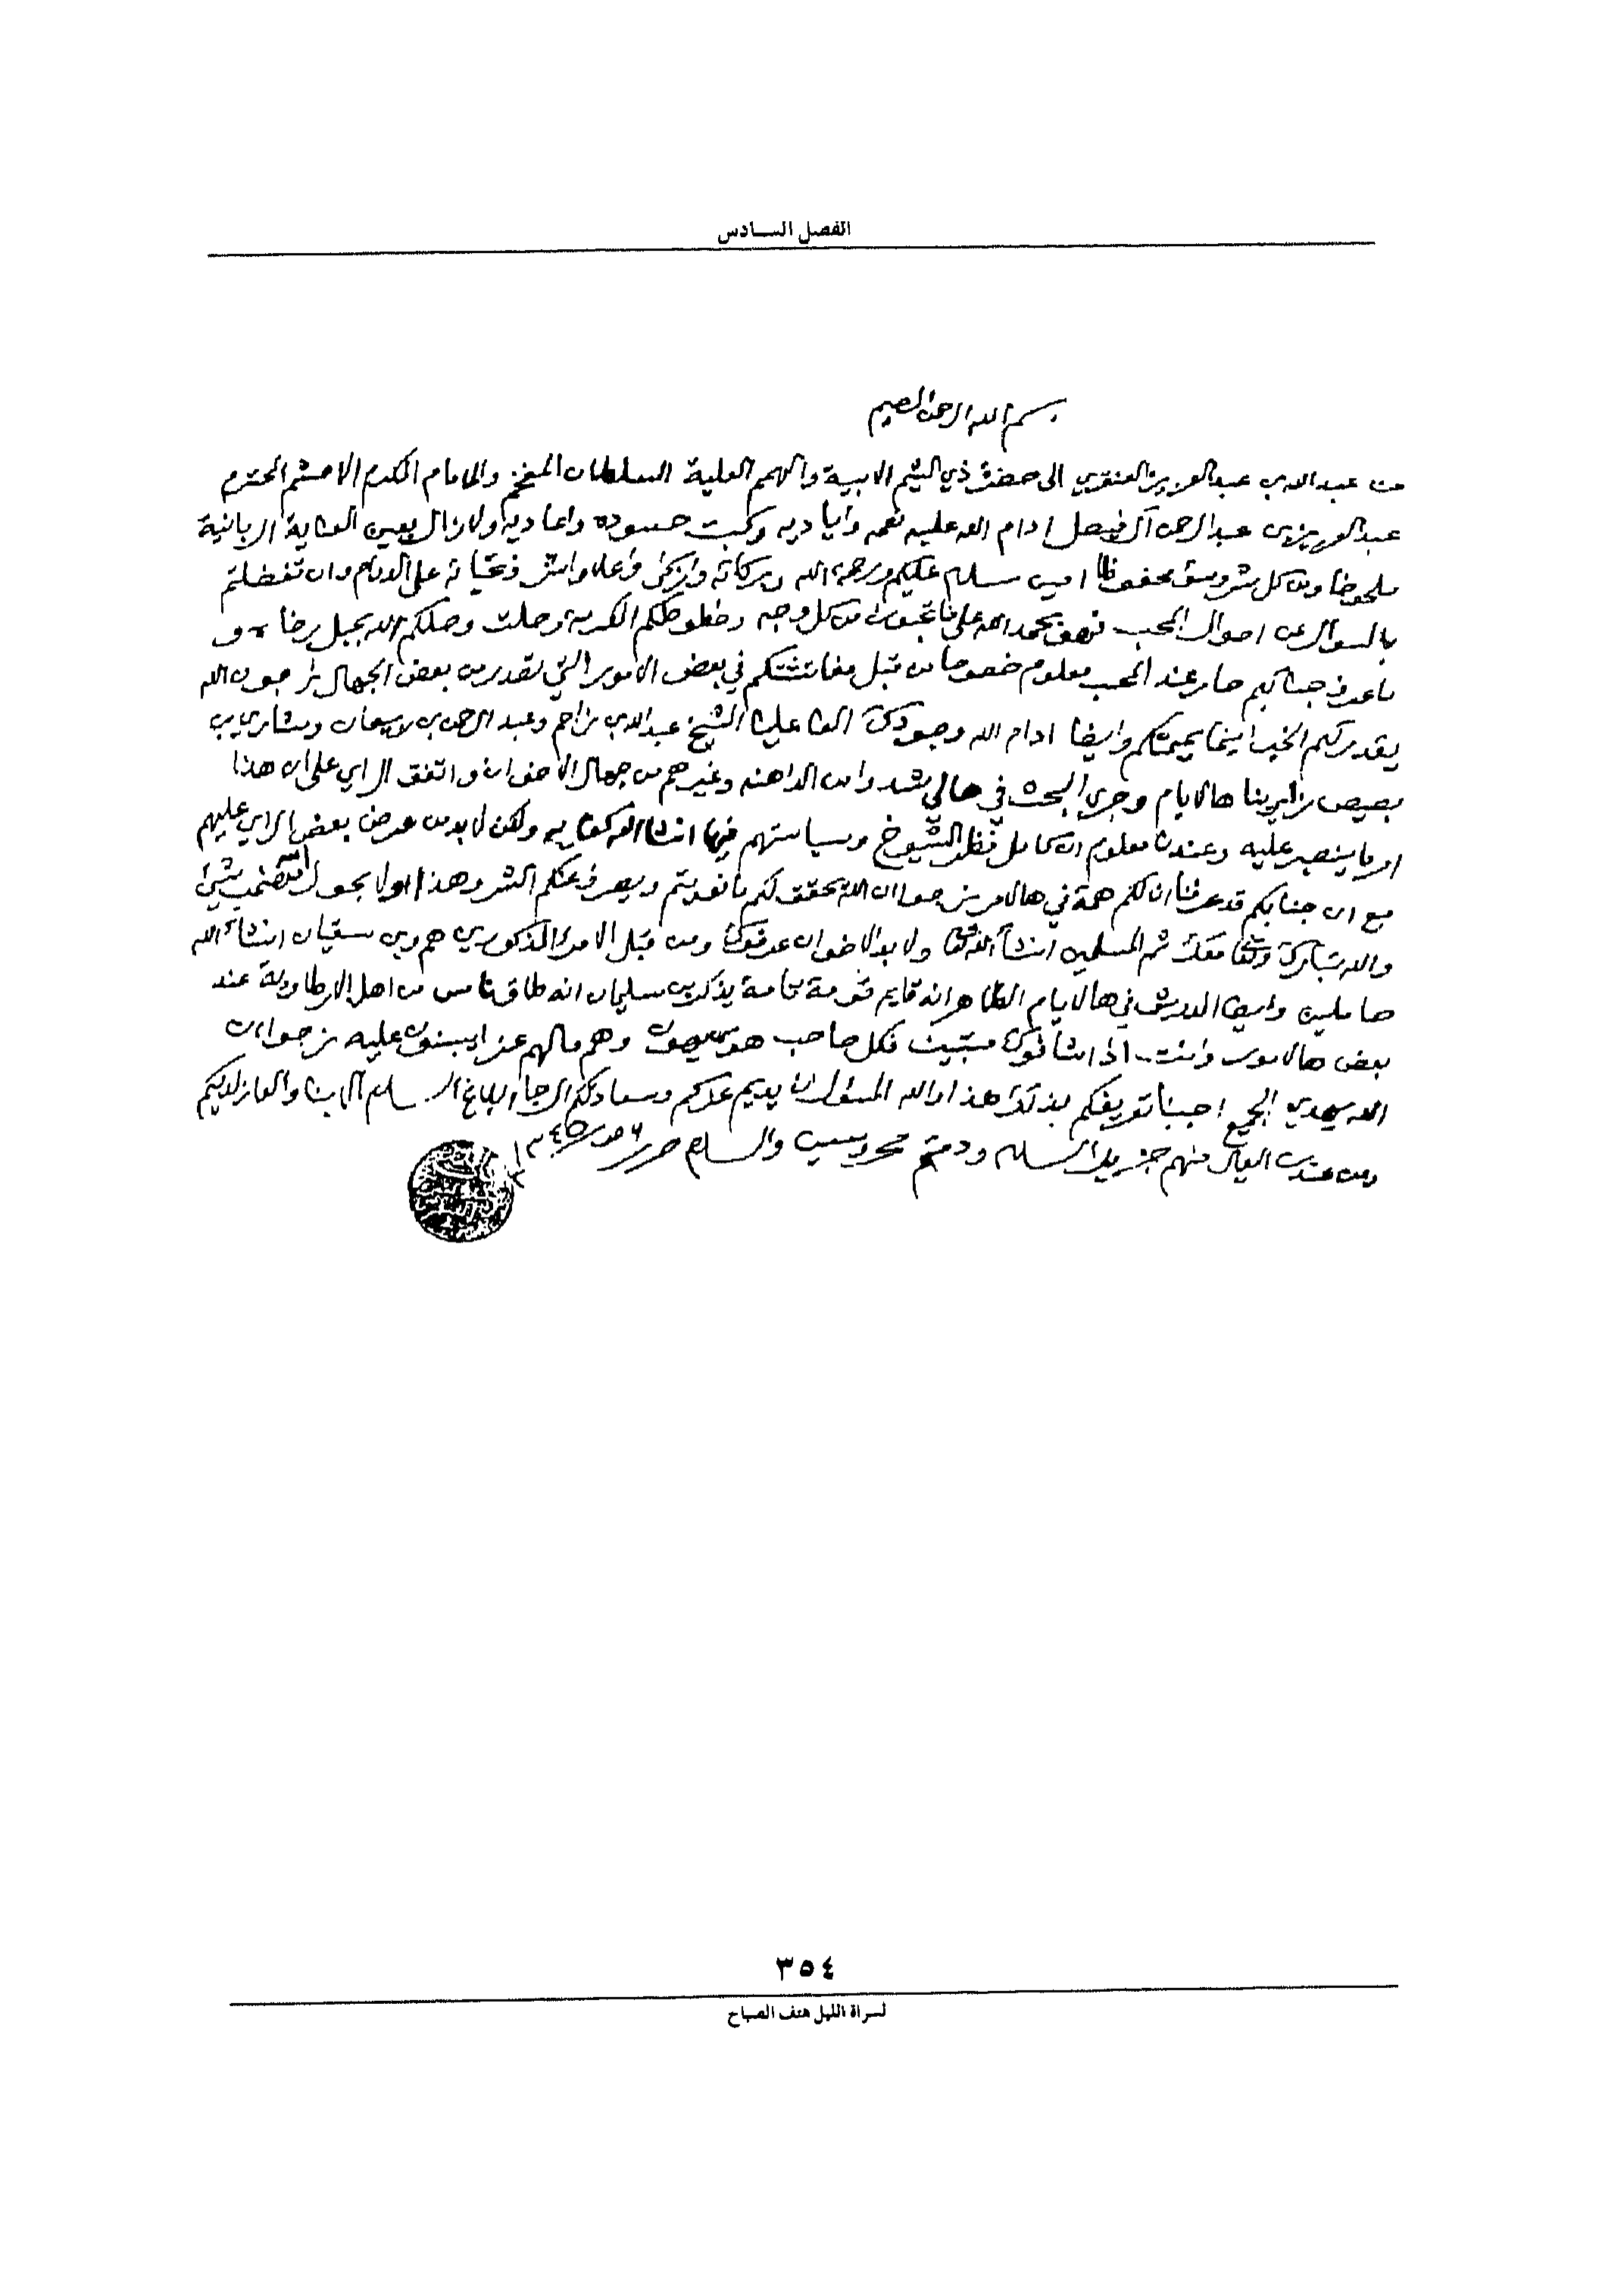 الفصل السادس
بسم الله الرحمن الرحيم
من عبدالله بن عبدالعزيز العنقري الى حضرة ذي الشيم الابية والهمم العلية السلطان المفخم والامام المكرم الاحشم المحترم
عبدالعزيز بن عبدالرحمن آل فيصل ادام الله عليه نعمه واياديه وكبت حسوده واعاديه ولازال بعين العناية الربانية
ملحوضا ومن كل شر وسوء محفوظا امين سلام عليكم ورحمة الله وبركاته وازكى واعلا واشرف تحياته على الدوام وان تفضلتم
بالسوال عن احوال المحب فهو بحمد الله على ما تحبون من كل وجه وخطوطكم الكريمة وصلت وصلكم الله بجميل رضاه و
ما عرف جنابكم صار عند المحب معلوم خصوصا من قبل في بعض الامور التي تصدر من بعض الجهال نرجو ان الله
يقدر لكم الخير اينما يممتم وايضا ادام الله وجودك الفا علينا الشيخ عبدالله بن زاحم وعبد الرحمن بن ومشاري بن
بصيص زايرينا هالايام وجرى البحث في هالي وغيرهم من جهال الاخوان واتفق الراي على ان هذا
امر ما ينصبر عليه وعندنا معلوم ان كامل نظر الشيوخ وسياستهم فيها انشاالله كفايه ولكن لابد من عرض بعض الراي عليهم
مع ان جنابكم قد عرفنا ان لكم همة في هالامر نرجوا ان الله يحقق لكم ما نويتم ويصرف عنكم الشر وهذا
والله تبارك وتعالى معك ثم المسلمين انشاء الله ولابد الاخوان ومن قبل الامراء المذكورين هم وبن سقيان انشاء الله
حاملين وايضا الدويش في هالايام الظاهر انه قايم قومة تامة يذكر بن سليمان انه ناس من اهل الارطاوية عند
بعض هالامور وانت اذا شافوك فكل صاحب هوى وهم مالهم عز عليه نرجوا ان
الله يهدي الجميع احببنا تعريفكم بذلك هذا والله المسئول ان يديم عزكم وسعادتكم الرجا ابلاغ السلام الابنا والعاز لديكم
ومن عندنا العيال منهم جزيل السلام ودمتم محروسين والسلام حرر ٦ ص ١٣٤٥
٣٥٤
لسراة الليل هتف الصباح